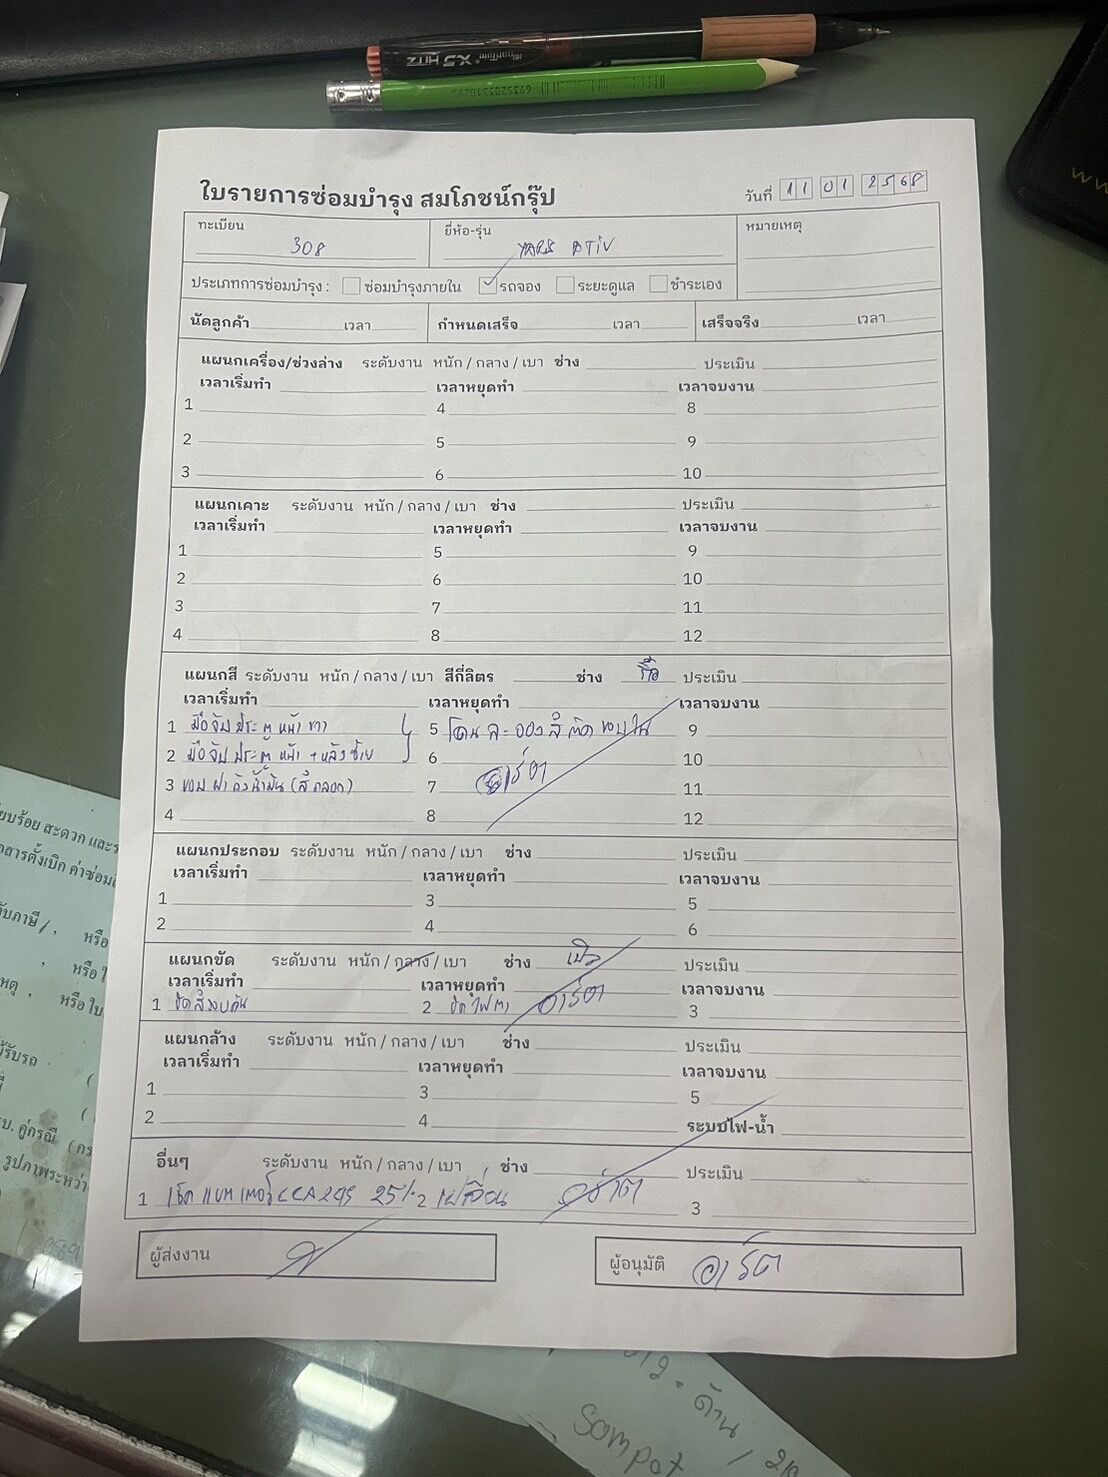 HITZ X5
6935205310
ใบรายการซ่อมบำรุง สมโภชน์กรุ๊ป
วันที่ 11 01 2568
ทะเบียน 308
ยี่ห้อ-รุ่น YARIS ATIV
หมายเหตุ
ประเภทการซ่อมบำรุง : ซ่อมบำรุงภายใน รถจอง ระยะดูแล ชำระเอง
นัดลูกค้า เวลา กำหนดเสร็จ เวลา เสร็จจริง เวลา
แผนกเครื่อง/ช่วงล่าง ระดับงาน หนัก / กลาง / เบา ช่าง ประเมิน
เวลาเริ่มทำ เวลาหยุดทำ เวลาจบงาน
1 4 8
2 5 9
3 6 10
แผนกเคาะ ระดับงาน หนัก / กลาง / เบา ช่าง ประเมิน
เวลาเริ่มทำ เวลาหยุดทำ เวลาจบงาน
1 5 9
2 6 10
3 7 11
4 8 12
แผนกสี ระดับงาน หนัก / กลาง / เบา สีกี่ลิตร ช่าง ประเมิน
เวลาเริ่มทำ เวลาหยุดทำ เวลาจบงาน
1 มือจับประตูหน้าขวา 5 โดนละอองสีติดขอบใน 9
2 มือจับประตูหน้า + หลังซ้าย 6 10
3 ขอบฝาถังน้ำมัน (สีถลอก) 7 อาร์ต 11
4 8 12
แผนกประกอบ ระดับงาน หนัก / กลาง / เบา ช่าง ประเมิน
เวลาเริ่มทำ เวลาหยุดทำ เวลาจบงาน
1 3 5
2 4 6
แผนกขัด ระดับงาน หนัก / กลาง / เบา ช่าง ประเมิน
เวลาเริ่มทำ เวลาหยุดทำ เวลาจบงาน
1 ขัดสีรอบคัน 2 ขัดไฟตา อาร์ต 3
แผนกล้าง ระดับงาน หนัก / กลาง / เบา ช่าง ประเมิน
เวลาเริ่มทำ เวลาหยุดทำ เวลาจบงาน
1 3 5
2 4 ระบบไฟ-น้ำ
อื่นๆ ระดับงาน หนัก / กลาง / เบา ช่าง ประเมิน
1 เช็คแบตเตอรี่ CCA 295 25% 2 เปลี่ยน อาร์ต 3
ผู้ส่งงาน
ผู้อนุมัติ อาร์ต
Sompot